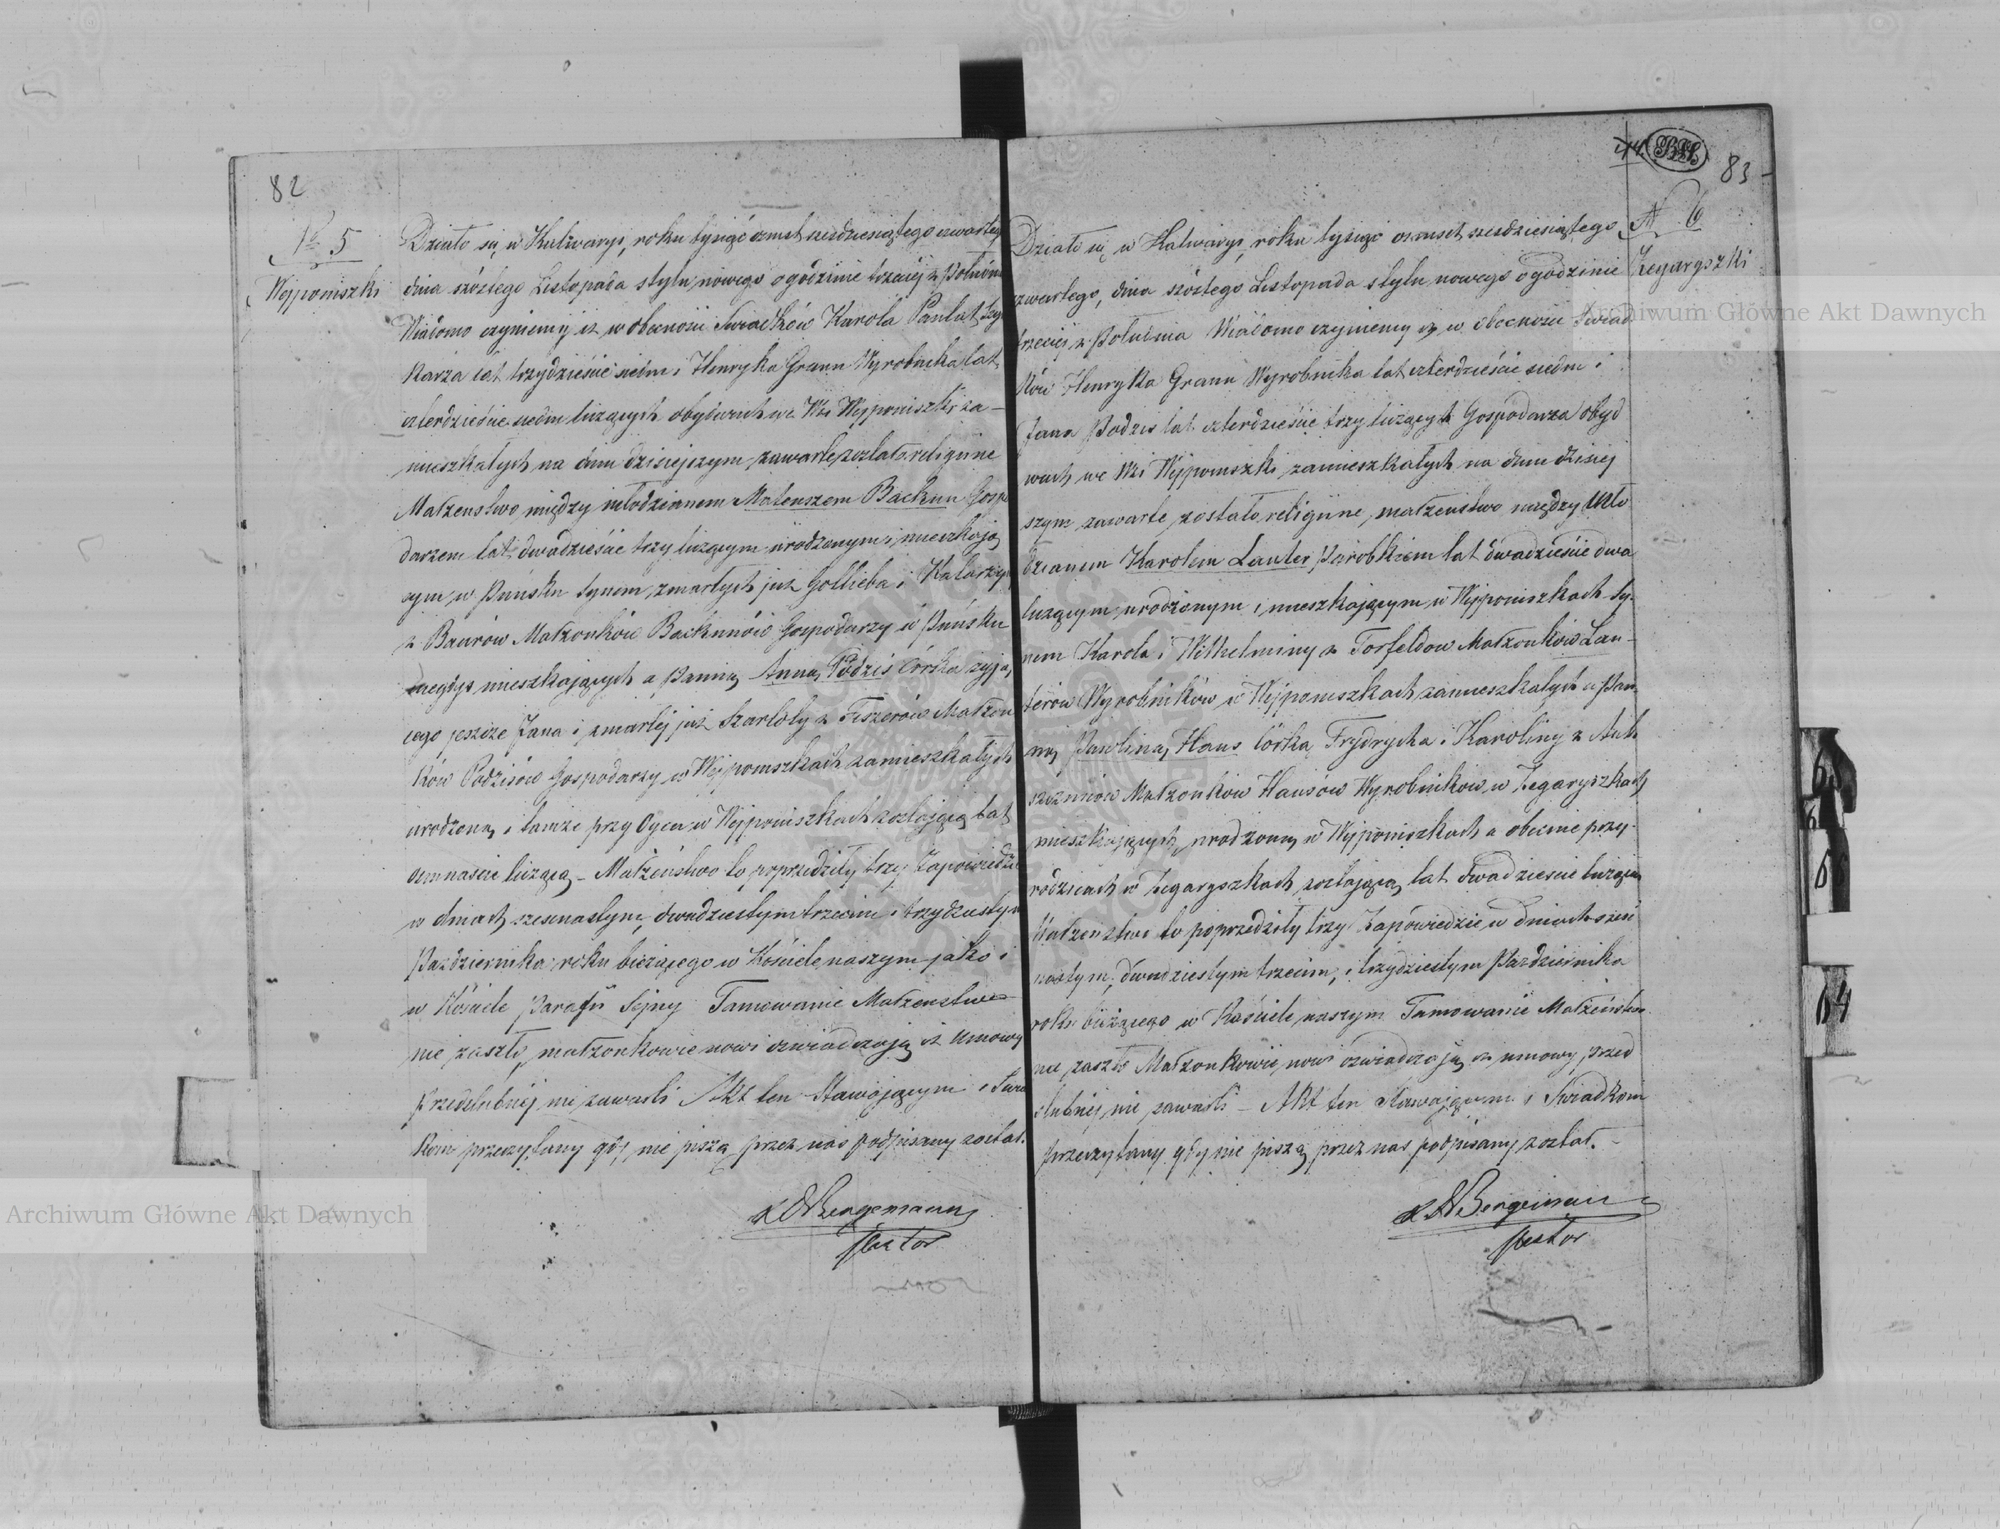 82
№ 5
Wejponiszki
Działo się w Kalwaryi, roku tysiąc osmset sześdziesiątego czwartego
dnia szóstego Listopada stylu nowego o godzinie trzeciej z Południa
Wiadomo czyniemy iż w obecności Świadków Karola Paulat
karza lat trzydzieście siedm i Henryka Grann Wyrobnika lat
czterdzieście siedm liczących obydwóch we Wsi Wejponiszki za-
mieszkałych na dniu dzisiejszym zawarte zostało religijne
Małżenstwo między młodzianem Mateuszem Backun Gospo
darzem lat dwadzieście trzy liczącym urodzonym i mieszkają
cym w Puńsku synem zmarłych już Gottlieba i Katarzyny
z Baurów Małżonków Backunów Gospodarzy w Puńsku
niegdys mieszkających a Panną Anną Podzis Córką żyją
cego jeszcze Jana i zmarłej już Szarloty z Fiszerów Małżon
ków Podzisów Gospodarzy w Wejponiszkach zamieszkałych
urodzoną i tamże przy Ojcu w Wejponiszkach zostającą lat
osmnaście liczącą – Małżeństwo to poprzedziły trzy Zapowiedzie
w dniach szesnastym, dwudziestym trzecim i trzydziestym
Października roku bieżącego w Kościele naszym jako i
w Kościele Parafii Sejny Tamowanie Małżenstwa
nie zaszło, małżonkowie nowi oswiadczają iż umowy
przedślubnej nie zawarli Akt ten Stawającym i Świad
kom przeczytany gdy nie piszą przez nas podpisany został.
x A Bergemann
Pastor
83
N 6
Zegaryszki
Działo się w Kalwaryi, roku tysiąc osmset sześdziesiątego
czwartego, dnia szóstego Listopada stylu nowego o godzinie
trzeciej z Południa Wiadomo czyniemy iż w obecności Świad
ków Henryka Grann Wyrobnika lat czterdzieście siedm i
Jana Podzis lat czterdzieście trzy liczących Gospodarza obyd
wóch we Wsi Wejponiszki zamieszkałych na dniu dzisiej
szym zawarte zostało religijne małżeństwo między Mło
dzianem Karolem Lauter Parobkiem lat dwadzieście dwa
liczącym urodzonym i mieszkającym w Wejponiszkach sy-
nem Karola i Wilhelminy z Torfeldow Małżonków Lau-
terów Wyrobników w Wejponiszkach zamieszkałych a Pan-
ną Pawliną Haus Córką Frydrycha i Karoliny z
Małżonków Hausów Wyrobników w Zegaryszkach
mieszkających, urodzoną w Wejponiszkach a obecnie przy
rodzicach w Zegaryszkach zostającą lat dwadzieście liczącą
Małżenstwo to poprzedziły trzy Zapowiedzie w dniach szes
nastym, dwudziestym trzecim, i trzydziestym Października
roku bieżącego w Kościele naszym Tamowanie Małżeństwa
nie zaszło Małżonkowie nowi oswiadczają iż umowy przed
ślubnej nie zawarli – Akt ten Stawającym i Świadkom
przeczytany gdy nie piszą przez nas podpisany został. –
x A Bergemann
Pastor
64
Archiwum Główne Akt Dawnych
Archiwum Główne Akt Dawnych